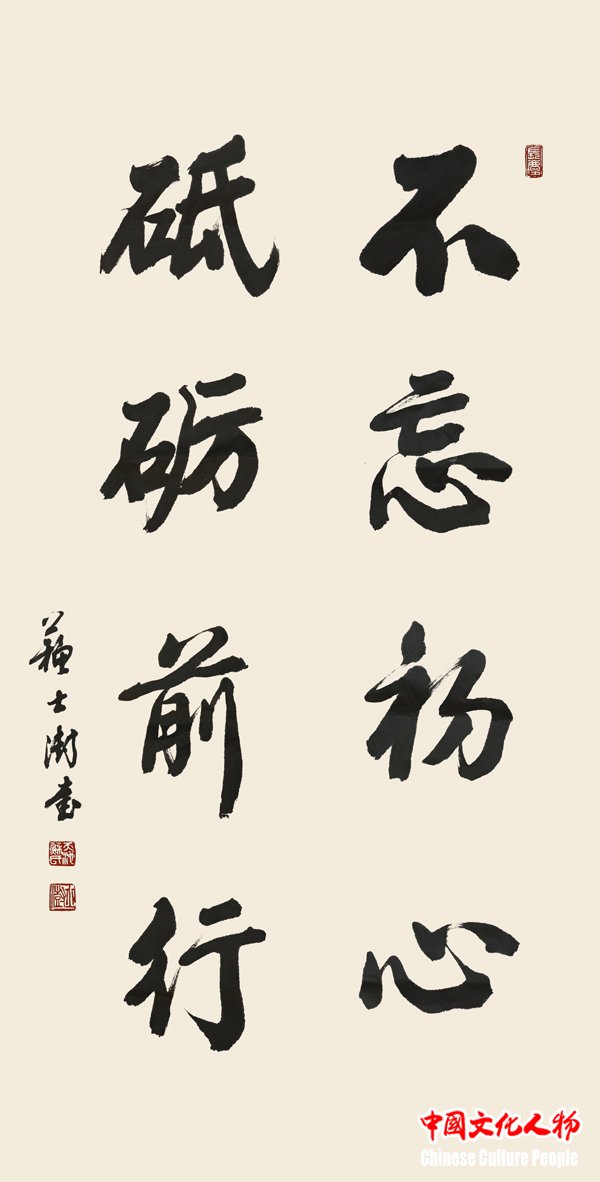 不忘初心
砥砺前行
苏士澍书
中國文化人物
Chinese Culture People